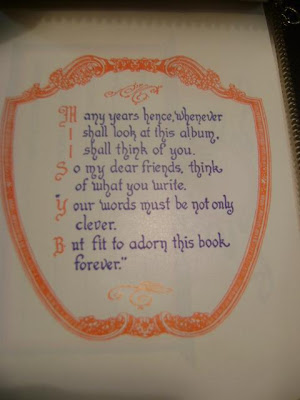 Many years hence, whenever
I shall look at this album,
I shall think of you.
So my dear friends, think
of what you write.
"Your words must be not only
clever.
But fit to adorn this book
forever."